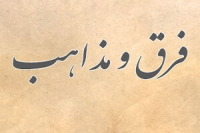 فرق و مذاهب